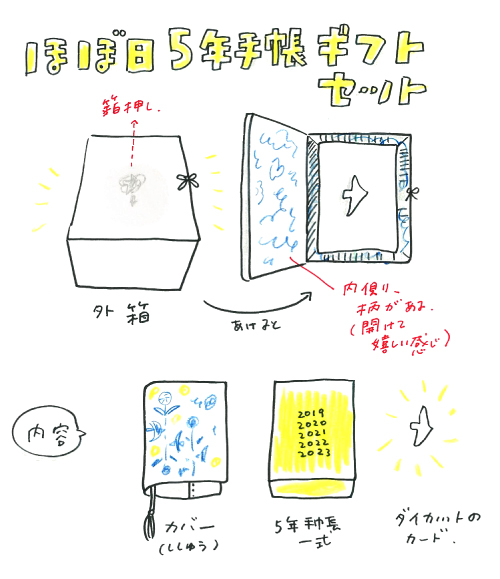 ほぼ日5年手帳ギフト
セット
箔押し.
外箱
あけると
内側に
柄がある.
(開けて
嬉しい感じ)
内容
2019
2020
2021
2022
2023
カバー
(ししゅう)
5年手帳
一式
ダイカットの
カード.